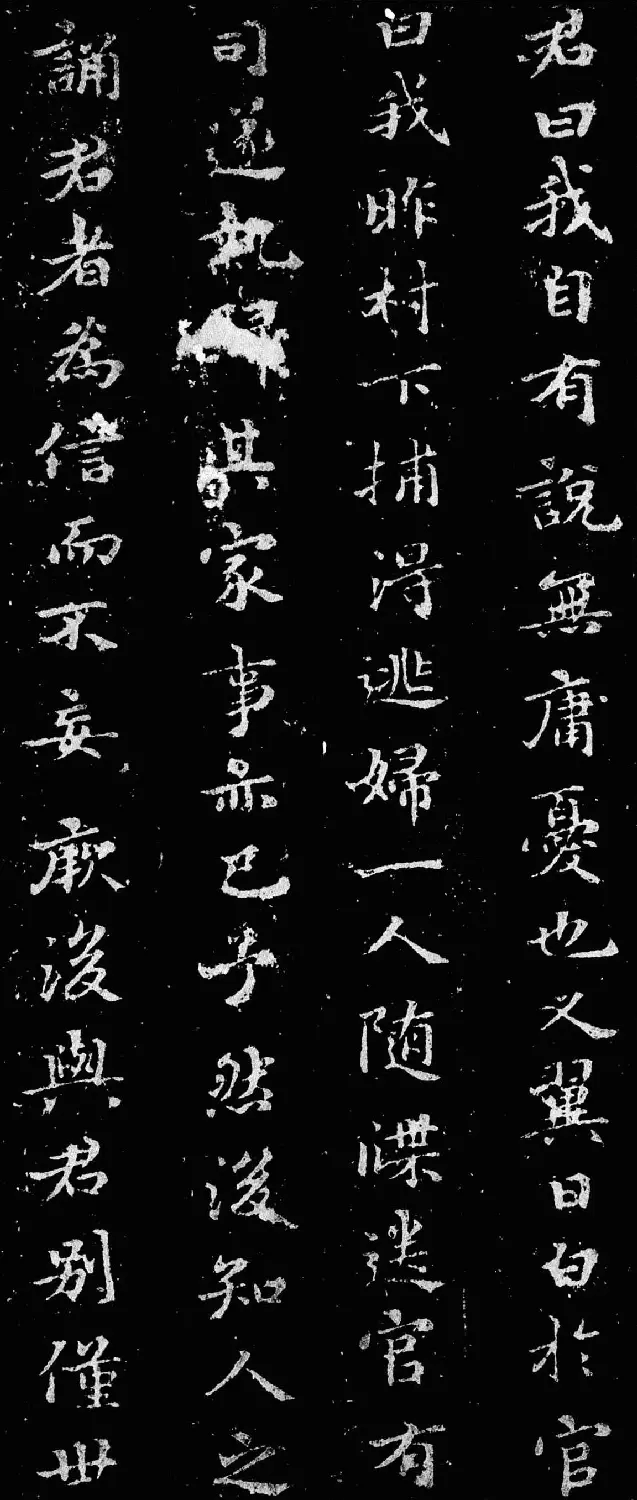 君曰我自有說無庸憂也乂翼日白於官
曰我昨村下捕得逃婦一人隨牒送官有
司遂執 其家事亦已乎然後知人之
誦君者為信而不妄厥後與君別僅卌